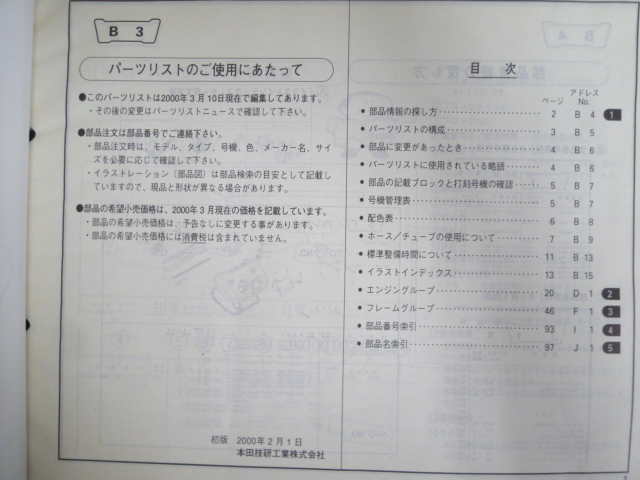 B 3
パーツリストのご使用にあたって
●このパーツリストは2000年3月10日現在で編集してあります。
・その後の変更はパーツリストニュースで確認して下さい。
●部品注文は部品番号でご連絡下さい。
・部品注文時は、モデル、タイプ、号機、色、メーカー名、サイ
ズを必要に応じて確認して下さい。
・イラストレーション（部品図）は部品検索の目安として記載し
ていますので、現品と形状が異なる場合があります。
●部品の希望小売価格は、2000年3月現在の価格を記載しています。
・部品の希望小売価格は、予告なしに変更する事があります。
・部品の希望小売価格には消費税は含まれていません。
初版 2000年2月1日
本田技研工業株式会社
目 次
ページ アドレス No.
● 部品情報の探し方 2 B 4 1
● パーツリストの構成 3 B 5
● 部品に変更があったとき 4 B 6
● パーツリストに使用されている略語 4 B 6
● 部品の記載ブロックと打刻号機の確認 5 B 7
● 号機管理表 5 B 7
● 配色表 6 B 8
● ホース／チューブの使用について 7 B 9
● 標準整備時間について 11 B 13
● イラストインデックス 13 B 15
● エンジングループ 20 D 1 2
● フレームグループ 46 F 1 3
● 部品番号索引 93 I 1 4
● 部品名索引 97 J 1 5